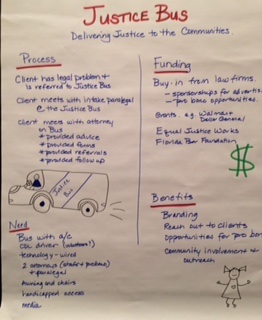 JUSTICE BUS
Delivering Justice to the Communities.
Process
Client has legal problem
is referred to Justice Bus
Client meets with intake paralegal
@ the Justice Bus
Client meets with attorney
on Bus
provided advice
provided forms
provided referrals
provided follow up
Justice Bus
Need
Bus with a/c
CDL driver
technology - wired
2 attorneys
paralegal
Awning and chairs
handicapped access
media
Funding
Buy-in from law firms.
- sponsorships for advertis
- pro bono opportunities.
Grants. e.g. Walmart
Dollar General
Equal Justice Works
Florida Bar Foundation
$
Benefits
Branding
Reach out to clients
Opportunities for pro bon
Community involvement &
outreach